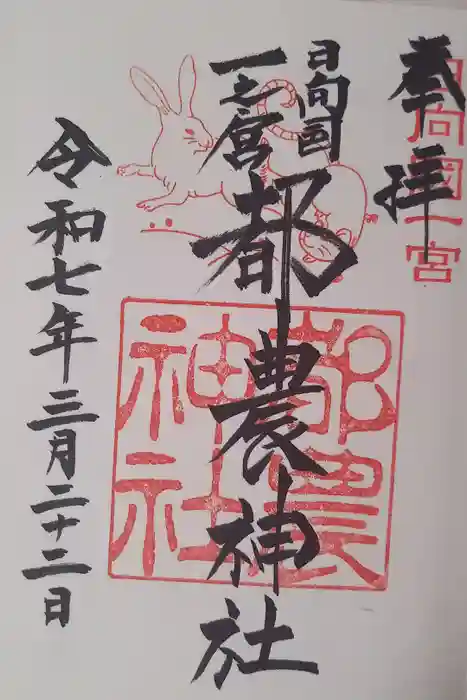 奉拝
日向國一宮
日向国
一之宮
都農神社
都農
神社
令和七年三月二十二日